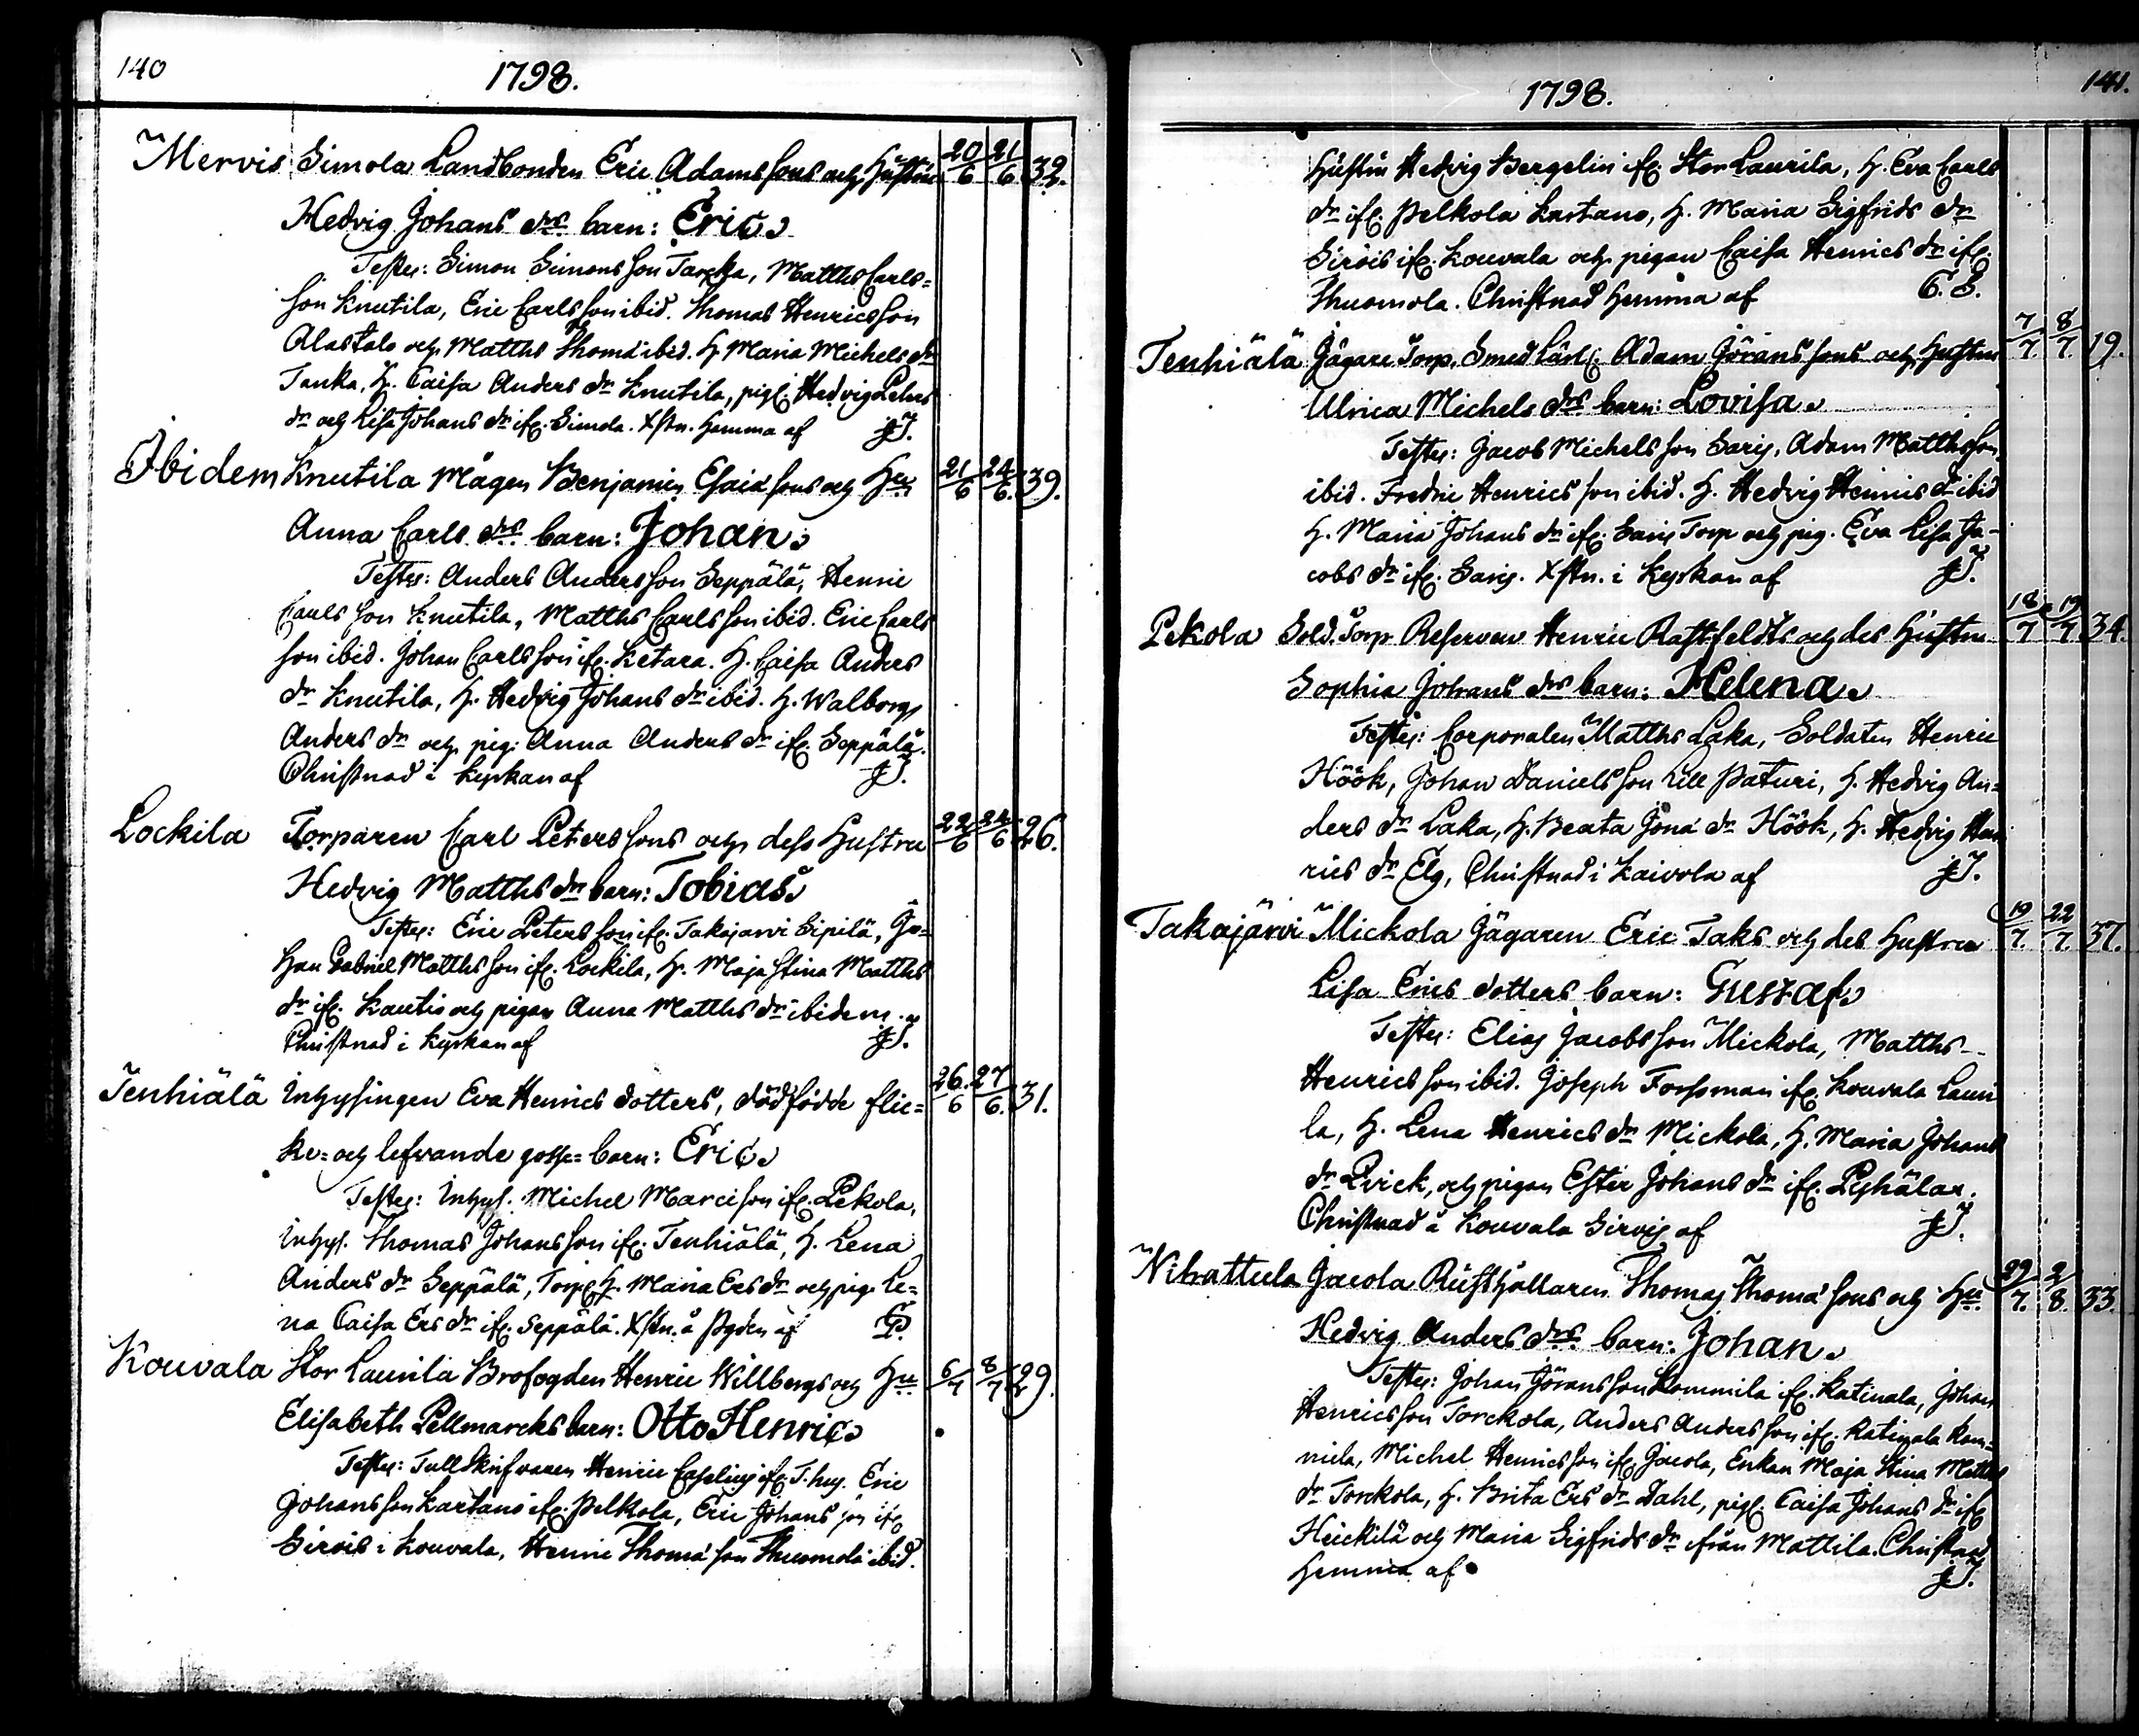 140
1798.
Mervis Simola Landbonden Eric Adamssons och Hustru 20/6 21/6 32.
Hedvig Johans drs barn: Eric.
Testes: Simon Simonsson Tarcka, Matths Carls=
son Knutila, Eric Carlsson ibid. Thomas Henricsson
Alastalo och Matths Thomæ ibid. H. Maria Michels dr
Tanka, H. Caisa Anders dr Knutila, pig. Hedvig
dr och Lisa Johans dr ifr. Simola. Xstn. hemma af
Ibidem Knutila Mågen Benjamin Esaiæ sons och Hu 21/6 24/6 39.
Anna Carls drs barn: Johan.
Testes: Anders Andersson Seppälä, Henric
Carls son Knutila, Matths Carlsson ibid. Eric Carls
son ibid. Johan Carlsson ifr. Ketara. H. Caisa Anders
dr Knutila, H. Hedvig Johans dr ibid. H. Walborg
Anders dr och pig: Anna Anders dr ifr. Seppälä.
Christnad i kyrkan af
Lockila Torparen Carl Peterssons och dess Hustru 22/6 24/6 26.
Hedvig Matths dr barn: Tobias.
Testes: Eric Petersson ifr. Takajarvi Sipilä, Jo=
han Gabriel Matthsson ifr. Lockila, H. Maja Stina Matths
dr ifr. Kautis och pigan Anna Matths dr ibidem.
Christnad i kyrkan af
Tenhiälä Inhysingen Eva Henrics dotters, dödfödde flic= 26/6 27/6. 31.
ke= och lefvande gosse=barn: Eric.
Testes: Inhys. Michel Marcisson ifr. Pekola,
Inhys. Thomas Johansson ifr. Tenhiälä, H. Lena
Anders dr Seppälä, Torp. H. Maria Ers dr och pig. Le=
na Caisa Ers dr ifr. Seppälä. Xstn. å af
Kouvala Stor Laurila Brofogden Henric Willbergs och Hu 6/7 8/7 29.
Elisabeth Pellmarcks barn: Otto Henric.
Testes: Tullskrifvaren Henric ifr. Eric
Johansson Kartano ifr. Pelkola, Eric Johans son ifr
Sirois i Kouvala, Henric Thomæ son Thuomola ibid.
1798.
141.
Hustru Hedvig Bergelin ifr. Stor Laurila, H. Eva Carls
dr ifr. Pelkola Kartano, H. Maria Sigfrids dr
Sirois ifr. Kouvala och pigan Caisa Henrics dr ifr.
Thuomola. Christnad hemma af
Tenhiälä Jägare Torp. Smed Adam Jöranssons och Hustru 7/7 8/7. 19.
Ulrica Michels drs barn: Lovisa.
Testes: Jacob Michelsson Saris, Adam Matthsson
ibid. Fredric Henrics son ibid. H. Hedvig Henrics dr ibid
H. Maria Johans dr ifr. Saris Torp och pig. Eva Lisa Ja-
cobs dr ifr. Saris. Xstn. i kyrkan af
Pekola Sold. Torp. Reserven Henric Rastfeldts och des Hustru 18/7 19/7 34.
Sophia Johans drs barn: Helena.
Testes: Corporalen Matths Laka, Soldaten Henric
Höök, Johan Danielsson Lill Paturi, H. Hedvig An=
ders dr Laka, H. Beata Jonæ dr Höök, H. Hedvig Hen
rics dr Elg, Christnad i Kaivola af
Takajärvi Mickola Jägaren Eric Taks och des Hustru 19/7. 22/7. 37.
Lisa Erics dotters barn: Gustaf.
Testes: Elias Jacobsson Mickola, Matths
Henricsson ibid. Joseph Forssman ifr. Kouvala Lauri
la, H. Lena Henrics dr Mickola, H. Maria Johans
dr Qvick, och pigan Ester Johans dr ifr. Pyhälax.
Christnad å Kouvala Sirois af
Nihattula Jacola Rusthållaren Thomas Thomæ sons och Hu 29/7. 2/8. 33.
Hedvig Anders drs barn: Johan.
Testes: Johan Jöransson Kommila ifr. Katinala, Johan
Henricsson Torckola, Anders Andersson ifr. Katinala Kom=
mila, Michel Henricsson ifr. Jacola, Enkan Maja Stina Matths
dr Torckola, H. Brita Ers dr Dahl, pig. Caisa Johans dr ifr
Heickilä och Maria Sigfrids dr ifrån Mattila. Christnad
hemma af